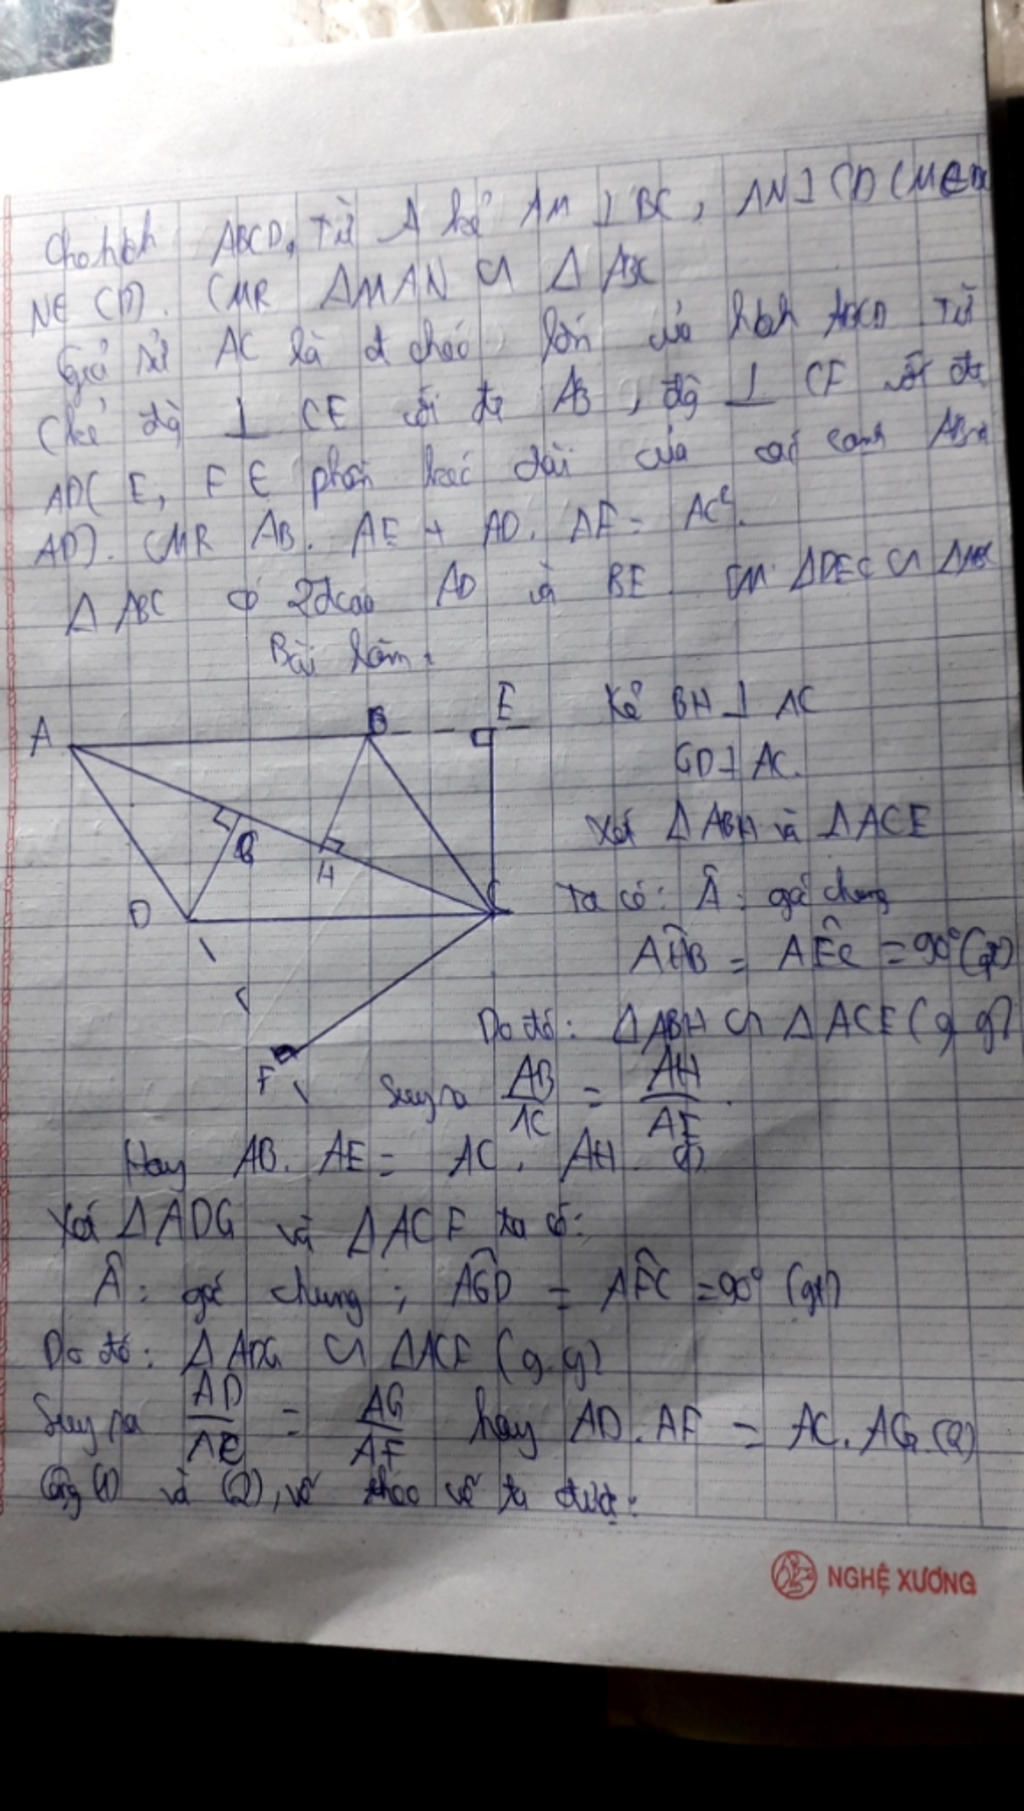 Cho hbh ABCD, Từ A kẻ AM ⊥ BC, AN ⊥ CD (M ∈ BC
N ∈ CD). CMR ΔMAN ∽ Δ ABC
Giả sử AC là đ chéo lớn của hbh ABCD Từ
C kẻ đg ⊥ CE với đt AB, đg ⊥ CF với đt
AD( E, F ∈ phần kéo dài của các cạnh AB và
AD). CMR AB. AE + AD. AF = AC².
Δ ABC có 2đcao AD và BE CM: ΔDEC ∽ ΔABC
Bài làm:
A B E
Kẻ BH ⊥ AC
GD ⊥ AC.
Xét Δ ABH và ΔACE
G H
D C
Ta có: Â: góc chung
AĤB = AÊC = 90° (gt)
Do đó: ΔABH ∽ ΔACE (g g)
F
Suy ra AB/AC = AH/AE.
Hay AB. AE = AC. AH. (1)
Xét ΔADG và ΔACF ta có:
Â: góc chung; AĜD = AF̂C = 90° (gt)
Do đó: ΔADG ∽ ΔACF (g.g)
Suy ra AD/AC = AG/AF hay AD. AF = AC. AG (2)
Cộng (1) và (2), vế theo vế ta được:
NGHỆ XƯƠNG